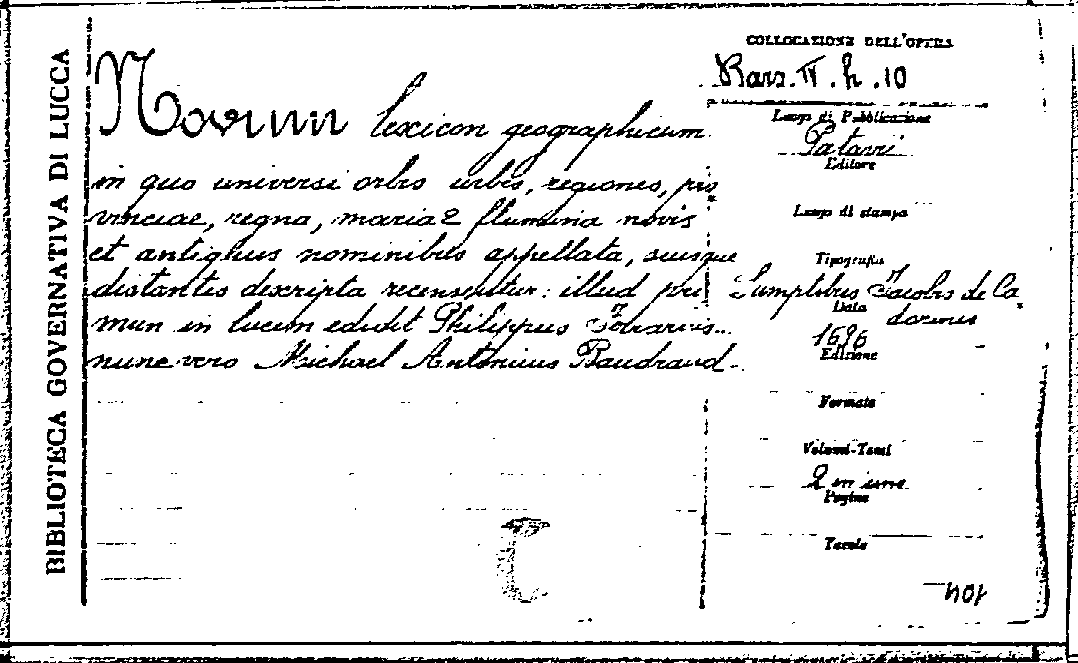 BIBLIOTECA GOVERNATIVA DI LUCCA
COLLOCAZIONE DELL'OPERA
Bars. II. h. 10
Novum lexicon geographicum
in quo universi orbis urbes, regiones, pro
vinciae, regna, maria & flumina novis
et antiquis nominibus appellata, suisque
distantis descripta recensentur: illud pri
mun in lucem edidit Philippus
nunc vero Michael Antonius Baudrand.
Luogo di Pubblicazione
Patavii
Editore
Luogo di stampa
Tipografia
Sumptibus Jacobi de Ca
dorinus
Data
1696
Edizione
Formato
Volumi-Tomi
2 in uno
Pagine
Tavole
C